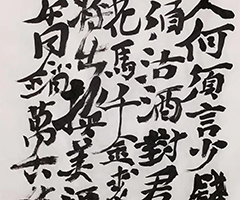 人何須言少錢
須沽酒對君
花馬千金裘
將出換美酒
同銷萬古